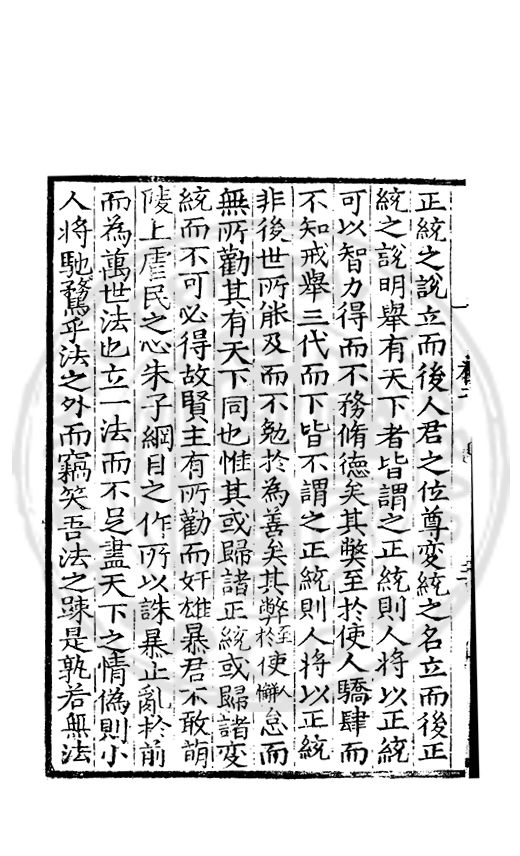 正統之說立而後人君之位尊變統之名立而後正
統之說明舉有天下者皆謂之正統則人將以正統
可以智力得而不務脩德矣其獘至於使人驕肆而
不知戒舉三代而下皆不謂之正統則人將以正統
非後世所能及而不勉於為善矣其弊至於使人懈怠而
無所勸其有天下同也惟其或歸諸正統或歸諸變
統而不可必得故賢主有所勸而奸雄暴君不敢萌
陵上虐民之心朱子綱目之作所以誅暴止亂於前
而為萬世法也立一法而不足盡天下之情偽則小
人將馳騖乎法之外而竊笑吾法之踈是孰若無法